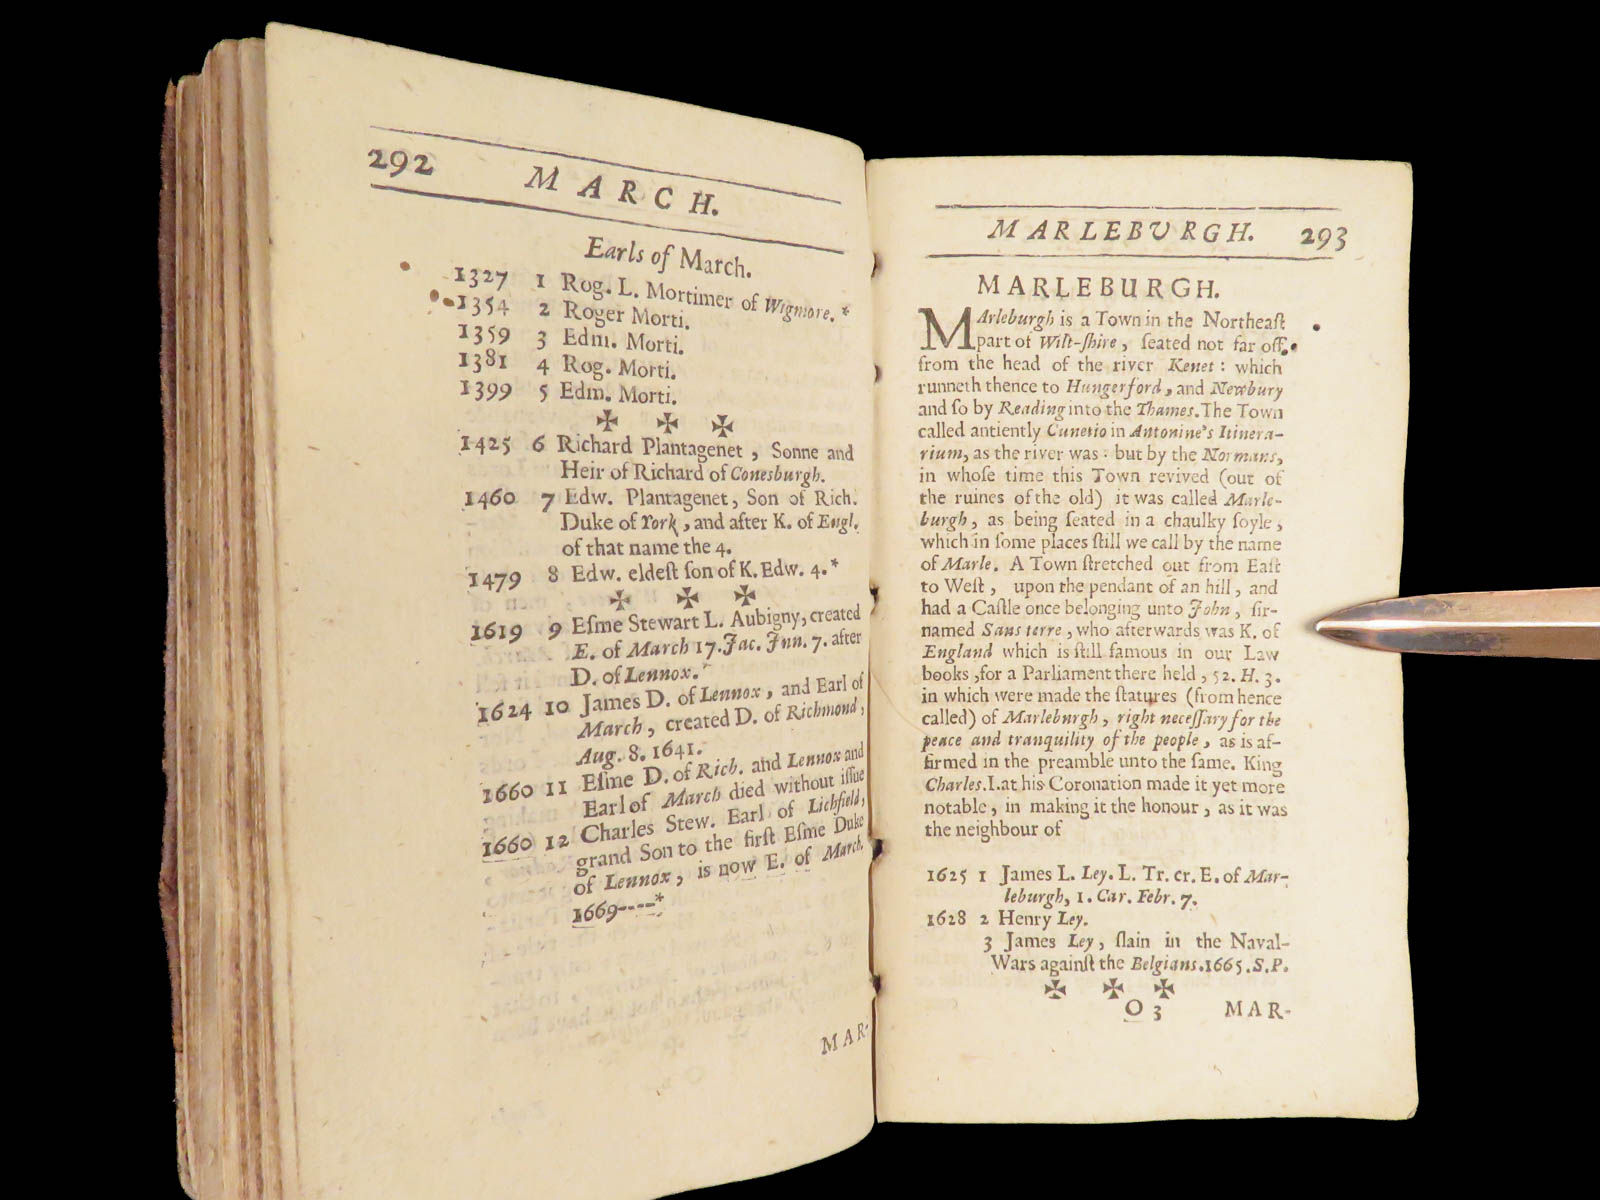 292 MARCH.
Earls of March.
1327 1 Rog. L. Mortimer of Wigmore. *
1354 2 Roger Morti.
1359 3 Edm. Morti.
1381 4 Rog. Morti.
1399 5 Edm. Morti.
✠ ✠ ✠
1425 6 Richard Plantagenet , Sonne and
Heir of Richard of Conesburgh.
1460 7 Edw. Plantagenet, Son of Rich.
Duke of York , and after K. of Engl.
of that name the 4.
1479 8 Edw. eldeſt ſon of K. Edw. 4.*
✠ ✠ ✠
1619 9 Eſme Stewart L. Aubigny, created
E. of March 17. Jac. Jun. 7. after
D. of Lennox.
1624 10 James D. of Lennox , and Earl of
March , created D. of Richmond,
Aug. 8. 1641.
1660 11 Eſme D. of Rich. and Lennox and
Earl of March died without iſſue
1660 12 Charles Stew. Earl of Lichfield,
grand Son to the firſt Eſme Duke
of Lennox, is now E. of March.
1669----*
MAR-
MARLEBURGH. 293
MARLEBURGH.
MArleburgh is a Town in the Northeaſt
part of Wilt-ſhire , ſeated not far off
from the head of the river Kenet : which
runneth thence to Hungerford , and Newbury
and ſo by Reading into the Thames. The Town
called antiently Cunetio in Antonine's Itinera-
rium, as the river was : but by the Normans,
in whoſe time this Town revived (out of
the ruines of the old) it was called Marle-
burgh , as being ſeated in a chaulky ſoyle ,
which in ſome places ſtill we call by the name
of Marle. A Town ſtretched out from Eaſt
to Weſt , upon the pendant of an hill , and
had a Caſtle once belonging unto John , ſir-
named Sans terre , who afterwards was K. of
England which is ſtill famous in our Law
books ,for a Parliament there held , 52. H. 3.
in which were made the ſtatutes (from hence
called) of Marleburgh , right neceſſary for the
peace and tranquility of the people , as is af-
firmed in the preamble unto the ſame. King
Charles.I.at his Coronation made it yet more
notable , in making it the honour , as it was
the neighbour of
1625 1 James L. Ley. L. Tr. cr. E. of Mar-
leburgh, 1. Car. Febr. 7.
1628 2 Henry Ley.
3 James Ley , ſlain in the Naval-
Wars againſt the Belgians.1665.S.P.
✠ ✠ ✠
O 3 MAR-